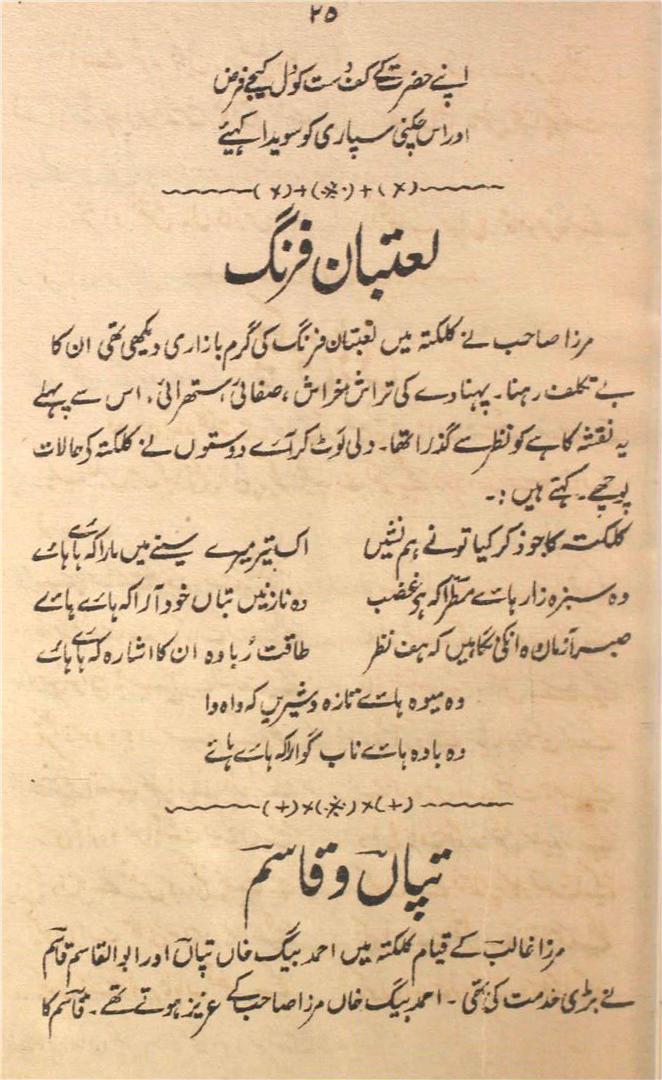 ۲۵
اپنے حضرت کے کف دست کو دل کیجے فرض
اور اس چکنی سپاری کو سویدا کہیئے
لعبتان فرنگ
مرزا صاحب نے کلکتہ میں لعبتان فرنگ کی گرم بازاری دیکھی تھی ان کا
بے تکلف رہنا۔ پہناوے کی تراش خراش، صفائی، ستھرائی، اس سے پہلے
یہ نقشہ کاہے کو نظر سے گذرا تھا۔ دلی لوٹ کر آئے دوستوں نے کلکتہ کے حالات
پوچھے۔ کہتے ہیں :۔
کلکتہ کا جو ذکر کیا تو نے ہم نشیں اک تیر میرے سینے میں مارا کہ ہائے ہائے
وہ سبزہ زار ہائے مطرّا کہ ہے غضب وہ نازنیں بتاں خود آرا کہ ہائے ہائے
صبر آزما وہ انکی نگاہیں کہ حف نظر طاقت رُبا وہ ان کا اشارہ کہ ہائے ہائے
وہ میوہ ہائے تازہ و شیریں کہ واہ وا
وہ بادہ ہائے ناب گوارا کہ ہائے ہائے
تپاںؔ و قاسمؔ
مرزا غالبؔ کے قیام کلکتہ میں احمد بیگ خاں تپاںؔ اور ابوالقاسم قاسمؔ
نے بڑی خدمت کی تھی۔ احمد بیگ خاں مرزا صاحب کے عزیز ہوتے تھے۔ قاسمؔ کا